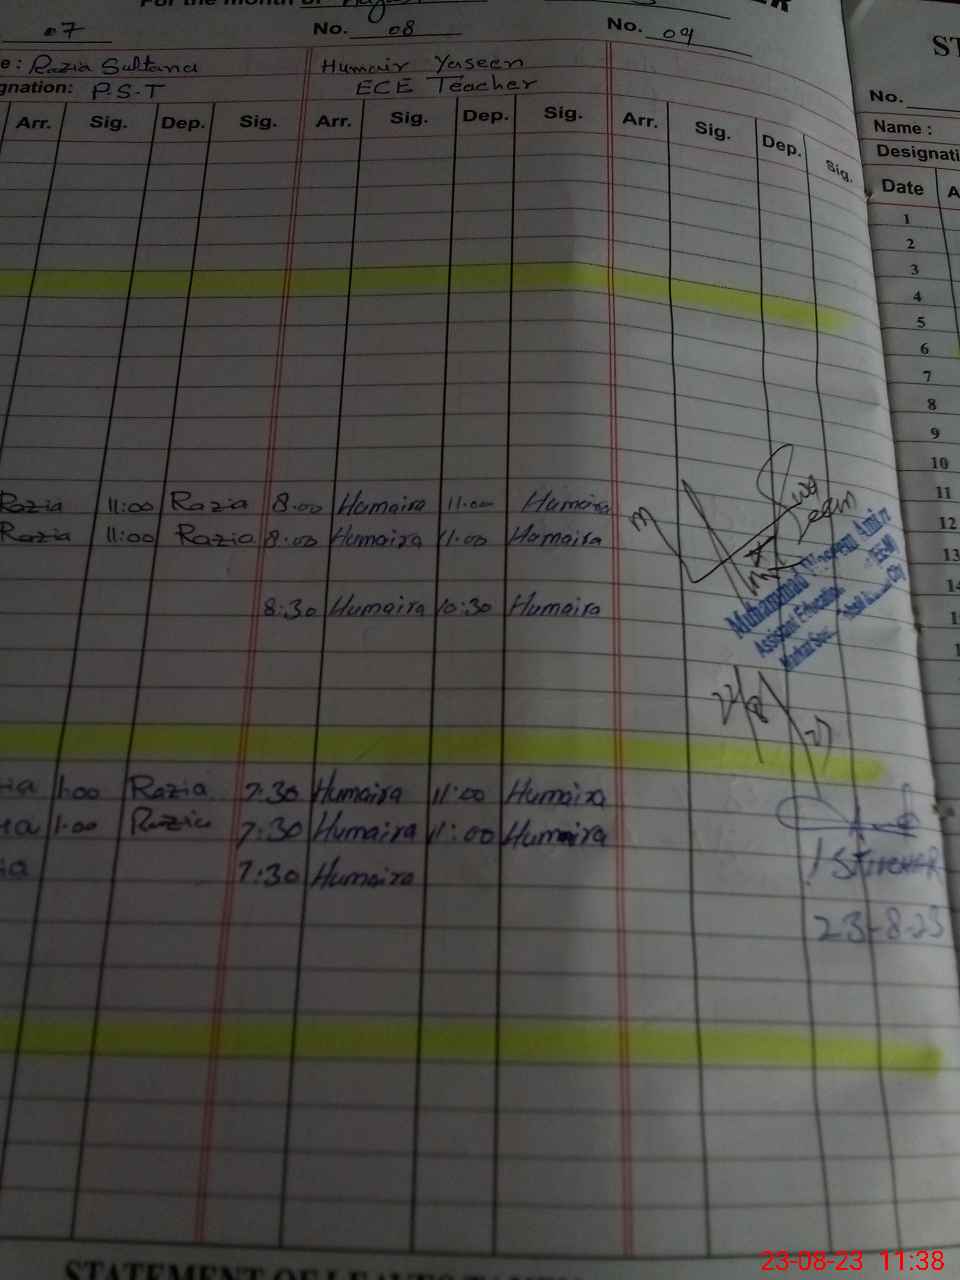 For the month of August
No. 07 No. 08 No. 09
e : Razia Sultana Humair Yaseen
gnation: P.S.T ECE Teacher
Arr. Sig. Dep. Sig. Arr. Sig. Dep. Sig. Arr. Sig. Dep. Sig.
Razia 11:00 Razia 8.00 Humaira 11.00 Humaira
Razia 11:00 Razia 8:00 Humaira 11.00 Humaira
8:30 Humaira 10:30 Humaira
Muhammad Waseem Amin
Assistant Education
Markaz
ia 1:00 Razia 7.30 Humaira 11:00 Humaira
ia 1.00 Razia 7:30 Humaira 11:00 Humaira
ia 7:30 Humaira
23-8-23
ST
No.
Name :
Designati
Date A
1
2
3
4
5
6
7
8
9
10
11
12
13
14
1
1
STATEMENT OF LEAVES TAKEN
23-08-23 11:38